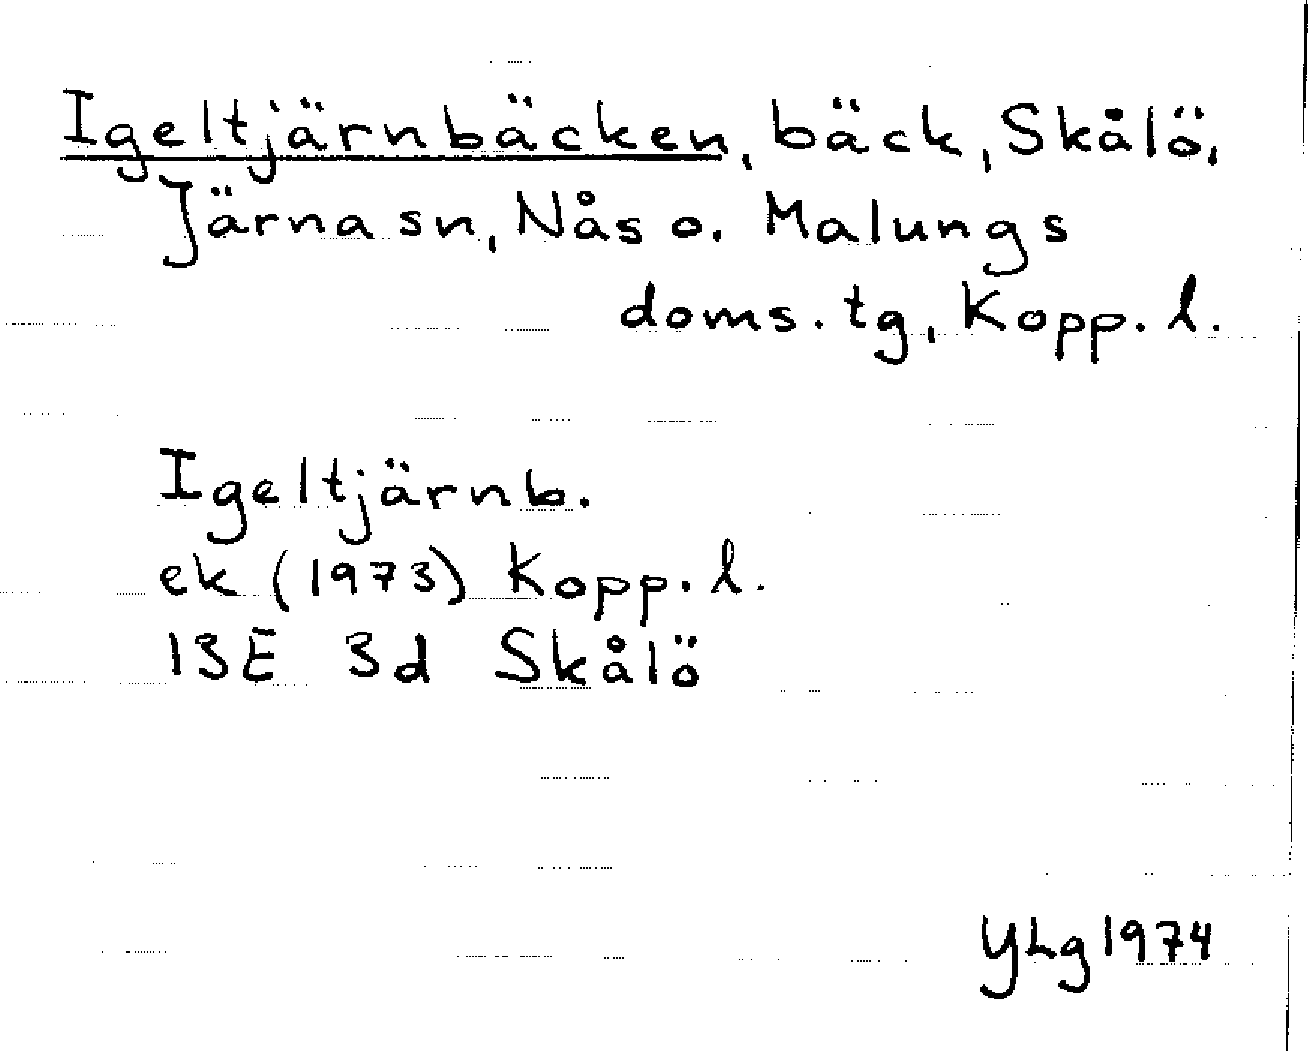 Igeltjärnbäcken, bäck, Skålö,
Järna sn, Nås o. Malungs
doms. tg, Kopp. l.
Igeltjärnb.
ek (1973) Kopp. l.
13E 3d Skålö
YLg 1974